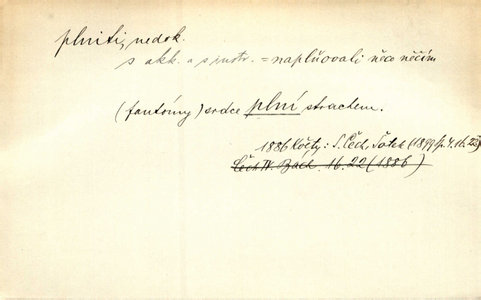 plniti, nedok.
s akk. a s instr. = naplňovati něco něčím
(fantómy) srdce plní strachem.
1886 Květy: S. Čech, Šotek (1899
Čech IV. Bách. 16. 22 (1886)